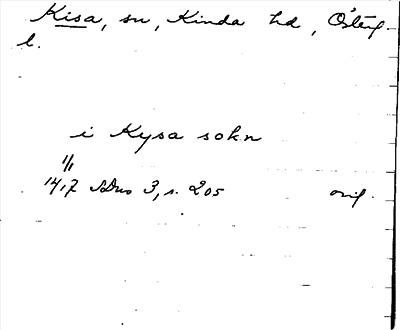 Kisa, sn, Kinda hd, Österg-
l.
i Kysa sokn
1/1
1417 SDns 3, s. 205 orig.